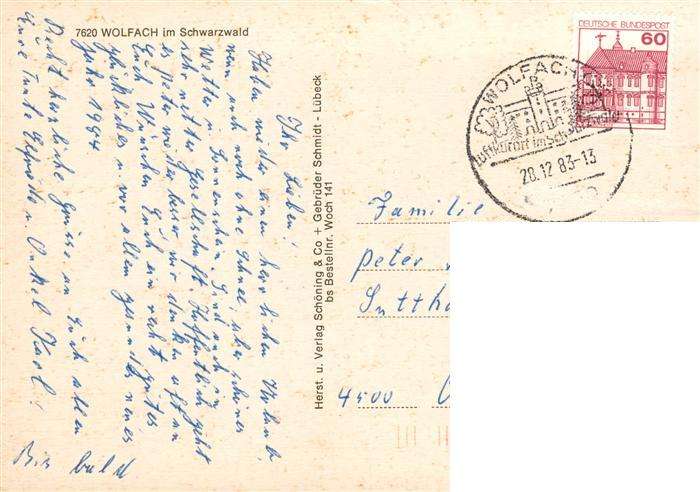 7620 WOLFACH im Schwarzwald
Ihr Lieben!
Haben wieder einen herrlichen Urlaub,
wenn auch noch ohne Schnee, aber schönes
Wetter u. Sonnenschein. Sind auch in
sehr netter Gesellschaft. Hoffentlich geht
es Peter wieder besser, wir denken oft an
Euch. Wünschen Euch ein recht gutes
glückliches u. vor allem gesundes neues
Jahr 1984
Recht herzliche Grüsse an Euch allen
Eure Tante u. Onkel Karl!
Bis bald
Herst. u. Verlag Schöning & Co + Gebrüder Schmidt - Lübeck
bs Bestellnr. Woch 141
DEUTSCHE BUNDESPOST
60
WOLFACH
Luftkurort im Schwarzwald
28.12.83-13
Familie
Peter
Sutth
4500